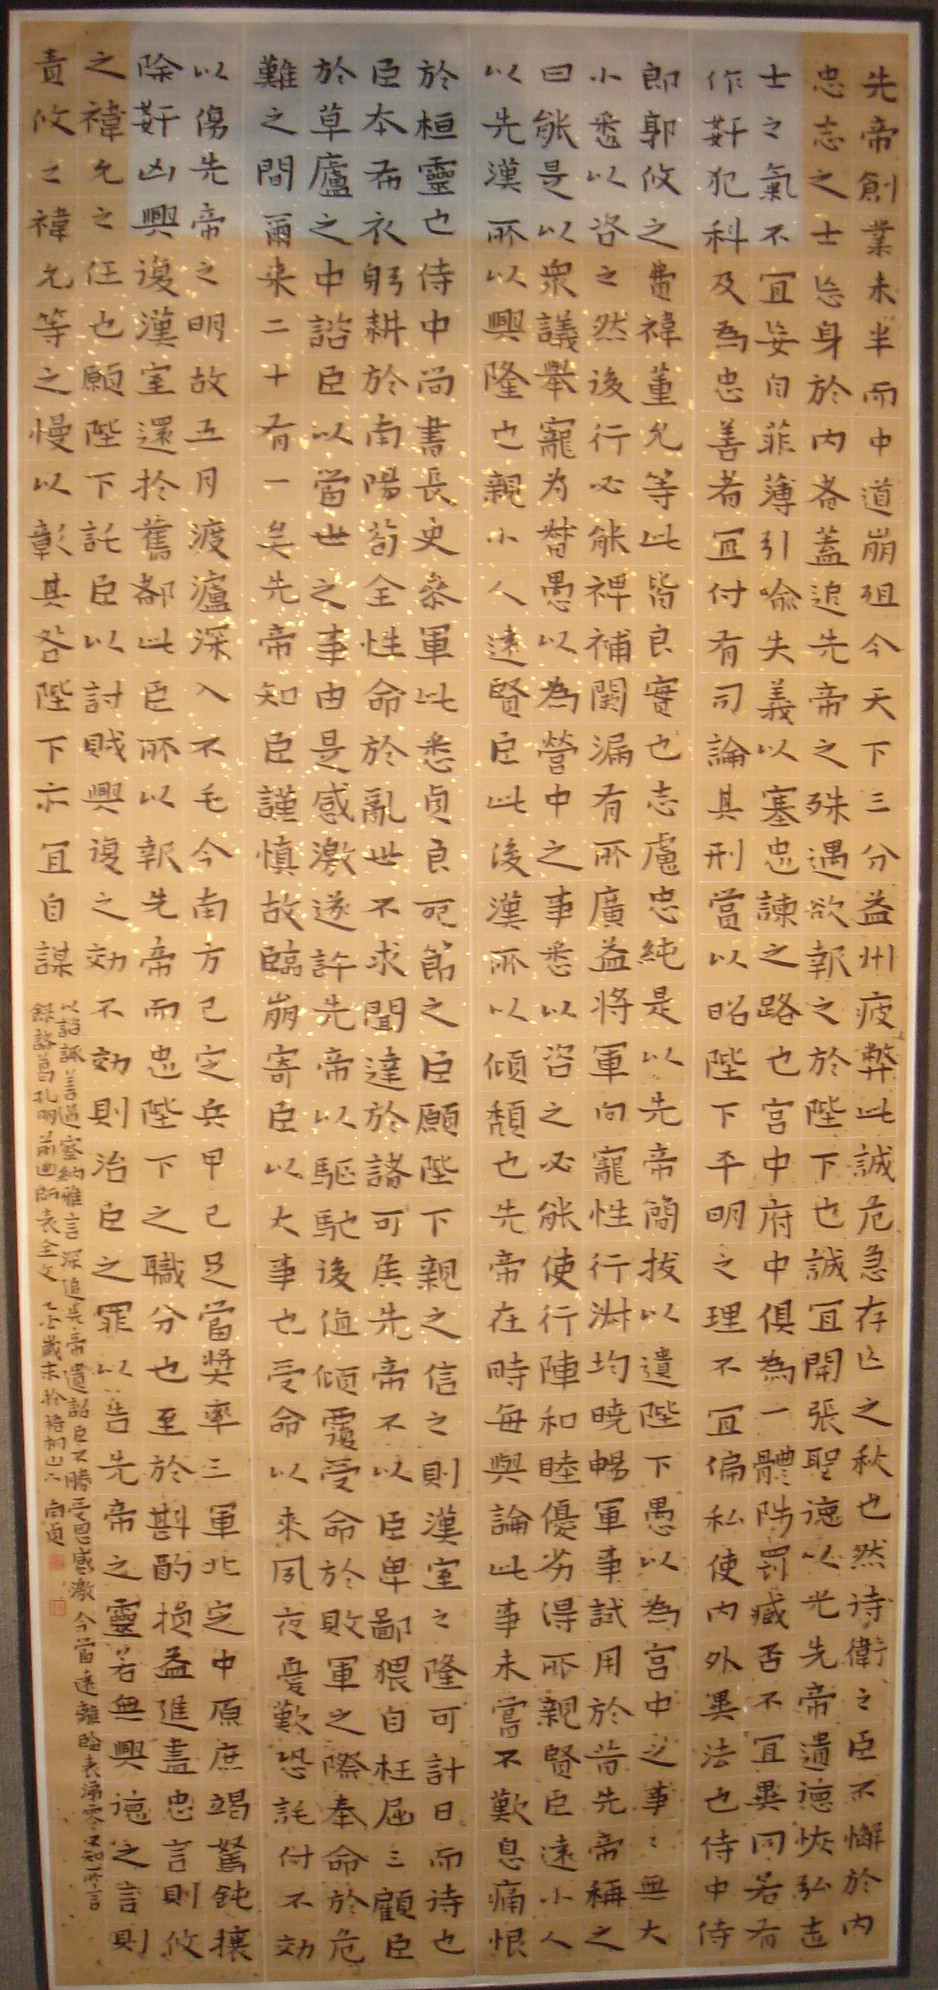 先帝創業未半而中道崩殂今天下三分益州疲弊此誠危急存亡之秋也然待衛之臣不懈於內
忠志之士忘身於內者蓋追先帝之殊遇欲報之於陛下也誠宜開張聖德以光先帝遺德恢弘志
士之氣不宜妄自菲薄引喻失義以塞忠諫之路也宮中府中俱為一體陟罰臧否不宜異同若有
作奸犯科及為忠善者宜付有司論其刑賞以昭陛下平明之理不宜偏私使內外異法也侍中侍
郎郭攸之費禕董允等此皆良實也志慮忠純是以先帝簡拔以遺陛下愚以為宮中之事〻無大
小悉以咨之然後行必能裨補闕漏有所廣益將軍向寵性行淑均曉暢軍事試用於昔先帝稱之
曰能是以眾議舉寵為督愚以為營中之事悉以咨之必能使行陣和睦優劣得所親賢臣遠小人
以先漢所以興隆也親小人遠賢臣此後漢所以傾頹也先帝在時每與論此事未嘗不歎息痛恨
於桓靈也侍中尚書長史參軍此悉貞良死節之臣願陛下親之信之則漢室之隆可計日而待也
臣本布衣躬耕於南陽苟全性命於亂世不求聞達於諸可侯先帝不以臣卑鄙猥自枉屈三顧臣
於草廬之中諮臣以當世之事由是感激遂許先帝以驅馳後值傾覆受命於敗軍之際奉命於危
難之間爾来二十有一矣先帝知臣謹慎故臨崩寄臣以大事也受命以来夙夜憂歎恐託付不効
以傷先帝之明故五月渡瀘深入不毛今南方已定兵甲已足當獎率三軍北定中原庶竭駑鈍攘
除奸凶興復漢室還於舊都此臣所以報先帝而忠陛下之職分也至於斟酌損益進盡忠言則攸
之禕允之任也願陛下託臣以討賊興復之効不効則治臣之罪以告先帝之靈若無興德之言則
責攸之禕允等之慢以彰其咎陛下亦宜自謀
以諮諏善道察納雅言深追先帝遺詔臣不勝受恩感激今當遠離臨表涕零不知所言
錄諸葛孔明前出師表全文 歲末於